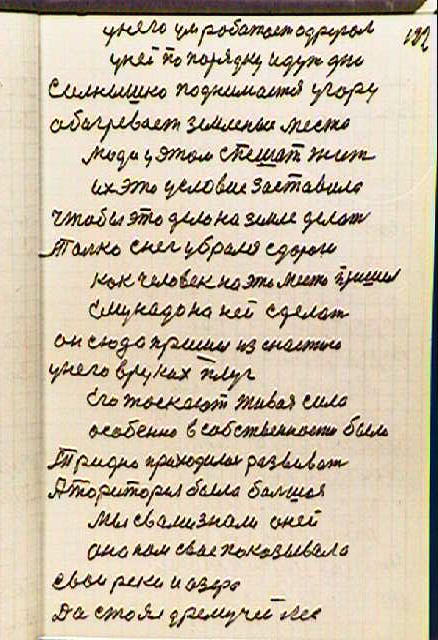 132
у него ум роботает о другом
у ней по порядку идут дни
Солнышко поднимается у гору
обогревает земленые место
Люди у этом спешат жит
их это условие заставило
Чтобы это дело на земле делат
Только снег убрался с дороги
как человек на это место пришол
Ему надо на ней сделат
он сюда пришол из снастью
у него в руках плуг
Его таскают живая сила
особенно в собственности было
Трудно приходилос развиват
А територия была большая
Мы с вами знали о ней
она нам свае показывала
свои реки и озера
Да стоял дремучей лес